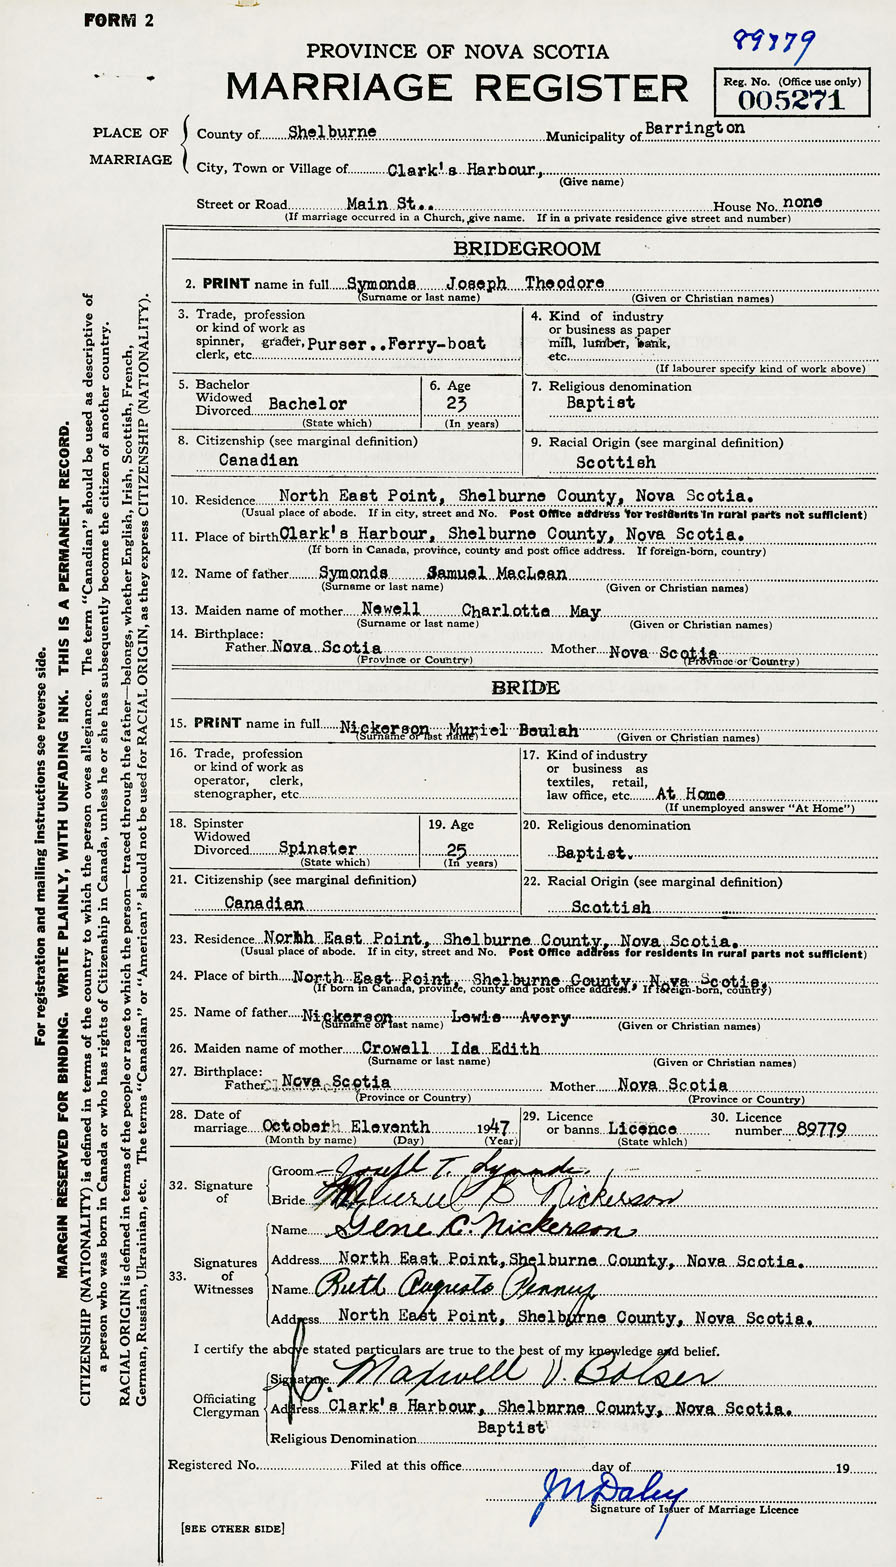 FORM 2
89779
PROVINCE OF NOVA SCOTIA
MARRIAGE REGISTER
Reg. No. (Office use only)
005271
PLACE OF MARRIAGE
County of Shelburne Municipality of Barrington
City, Town or Village of Clark's Harbour,
(Give name)
Street or Road Main St.. House No. none
(If marriage occurred in a Church, give name. If in a private residence give street and number)
BRIDEGROOM
2. PRINT name in full Symonds Joseph Theodore
(Surname or last name) (Given or Christian names)
3. Trade, profession
or kind of work as
spinner, grader,
clerk, etc. Purser..Ferry-boat
4. Kind of industry
or business as paper
mill, lumber, bank,
etc.
(If labourer specify kind of work above)
5. Bachelor
Widowed
Divorced Bachelor
(State which)
6. Age
23
(In years)
7. Religious denomination
Baptist
8. Citizenship (see marginal definition)
Canadian
9. Racial Origin (see marginal definition)
Scottish
10. Residence North East Point, Shelburne County, Nova Scotia.
(Usual place of abode. If in city, street and No. Post Office address for residents in rural parts not sufficient)
11. Place of birth Clark's Harbour, Shelburne County, Nova Scotia.
(If born in Canada, province, county and post office address. If foreign-born, country)
12. Name of father Symonds Samuel MacLean
(Surname or last name) (Given or Christian names)
13. Maiden name of mother Newell Charlotte May
(Surname or last name) (Given or Christian names)
14. Birthplace:
Father Nova Scotia Mother Nova Scotia
(Province or Country) (Province or Country)
BRIDE
15. PRINT name in full Nickerson Muriel Beulah
(Surname or last name) (Given or Christian names)
16. Trade, profession
or kind of work as
operator, clerk,
stenographer, etc
17. Kind of industry
or business as
textiles, retail,
law office, etc. At Home
(If unemployed answer "At Home")
18. Spinster
Widowed
Divorced Spinster
(State which)
19. Age
25
(In years)
20. Religious denomination
Baptist.
21. Citizenship (see marginal definition)
Canadian
22. Racial Origin (see marginal definition)
Scottish
23. Residence North East Point, Shelburne County, Nova Scotia.
(Usual place of abode. If in city, street and No. Post Office address for residents in rural parts not sufficient)
24. Place of birth North East Point, Shelburne County, Nova Scotia.
(If born in Canada, province, county and post office address. If foreign-born, country)
25. Name of father Nickerson Lewis Avery
(Surname or last name) (Given or Christian names)
26. Maiden name of mother Crowell Ida Edith
(Surname or last name) (Given or Christian names)
27. Birthplace:
Father Nova Scotia Mother Nova Scotia
(Province or Country) (Province or Country)
28. Date of
marriage October Eleventh 1947
(Month by name) (Day) (Year)
29. Licence
or banns Licence
(State which)
30. Licence
number 89779
32. Signature of
Groom Joseph T. Symonds.
Bride Muriel B Nickerson
33. Signatures of Witnesses
Name Gene C. Nickerson
Address North East Point, Shelburne County, Nova Scotia.
Name Ruth Augusta Penney
Address North East Point, Shelburne County, Nova Scotia.
I certify the above stated particulars are true to the best of my knowledge and belief.
Officiating Clergyman
Signature Maxwell V. Bolser
Address Clark's Harbour, Shelburne County, Nova Scotia.
Baptist
Religious Denomination
Registered No. Filed at this office day of 19
JM Daley
Signature of Issuer of Marriage Licence
[SEE OTHER SIDE]
For registration and mailing instructions see reverse side.
MARGIN RESERVED FOR BINDING. WRITE PLAINLY, WITH UNFADING INK. THIS IS A PERMANENT RECORD.
CITIZENSHIP (NATIONALITY) is defined in terms of the country to which the person owes allegiance. The term "Canadian" should be used as descriptive of
a person who was born in Canada or who has rights of Citizenship in Canada, unless he or she has subsequently become the citizen of another country.
RACIAL ORIGIN is defined in terms of the people or race to which the person—traced through the father—belongs, whether English, Irish, Scottish, French,
German, Russian, Ukrainian, etc. The terms "Canadian" or "American" should not be used for RACIAL ORIGIN, as they express CITIZENSHIP (NATIONALITY).